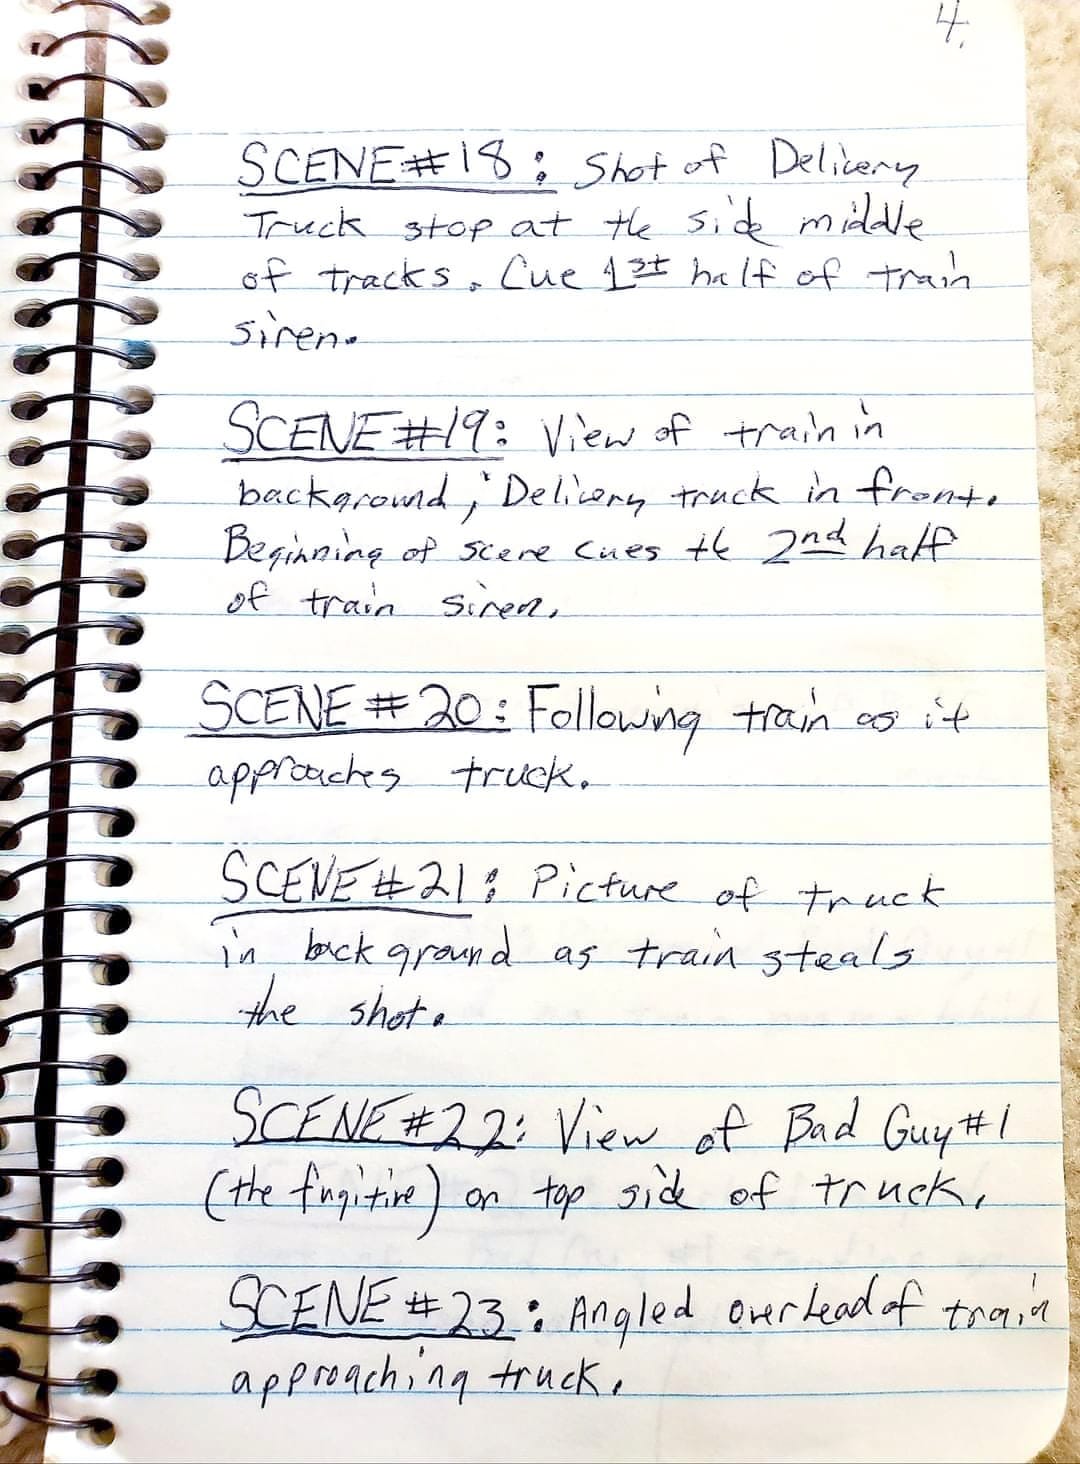 4.
SCENE#18: Shot of Delivery
Truck stop at the side middle
of tracks. Cue 1st half of train
siren.
SCENE#19: View of train in
background; Delivery truck in front.
Beginning of scene cues the 2nd half
of train siren.
SCENE #20: Following train as it
approaches truck.
SCENE #21: Picture of truck
in background as train steals
the shot.
SCENE #22: View of Bad Guy #1
(the fugitive) on top side of truck.
SCENE #23: Angled overhead of train
approaching truck.